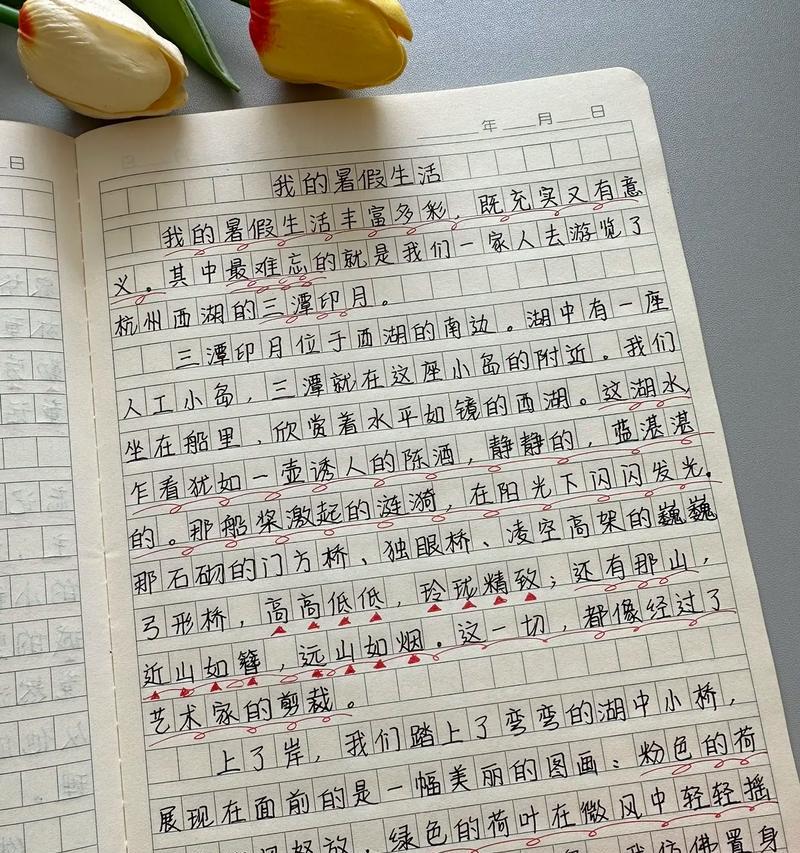 年 月 日
日
我的暑假生活
我的暑假生活丰富多彩，既充实又有意
义。其中最难忘的就是我们一家人去游览了
杭州西湖的三潭印月。
三潭印月位于西湖的南边。湖中有一座
人工小岛，三潭就在这座小岛的附近。我们
坐在船里，欣赏着水平如镜的西湖。这湖水
乍看犹如一壶诱人的陈酒，静静的，蓝湛湛
的。那船桨激起的涟漪，在阳光下闪闪发光。
那石砌的门方桥、独眼桥、凌空高架的巍巍
弓形桥，高高低低，玲珑精致；还有那山，
近山如簪，远山如烟。这一切，都像经过了
艺术家的剪裁。
上了岸，我们踏上了弯弯的湖中小桥，
展现在面前的是一幅美丽的图画：粉色的荷
怒放，绿色的荷叶在微风中轻轻摇
我仿佛置身